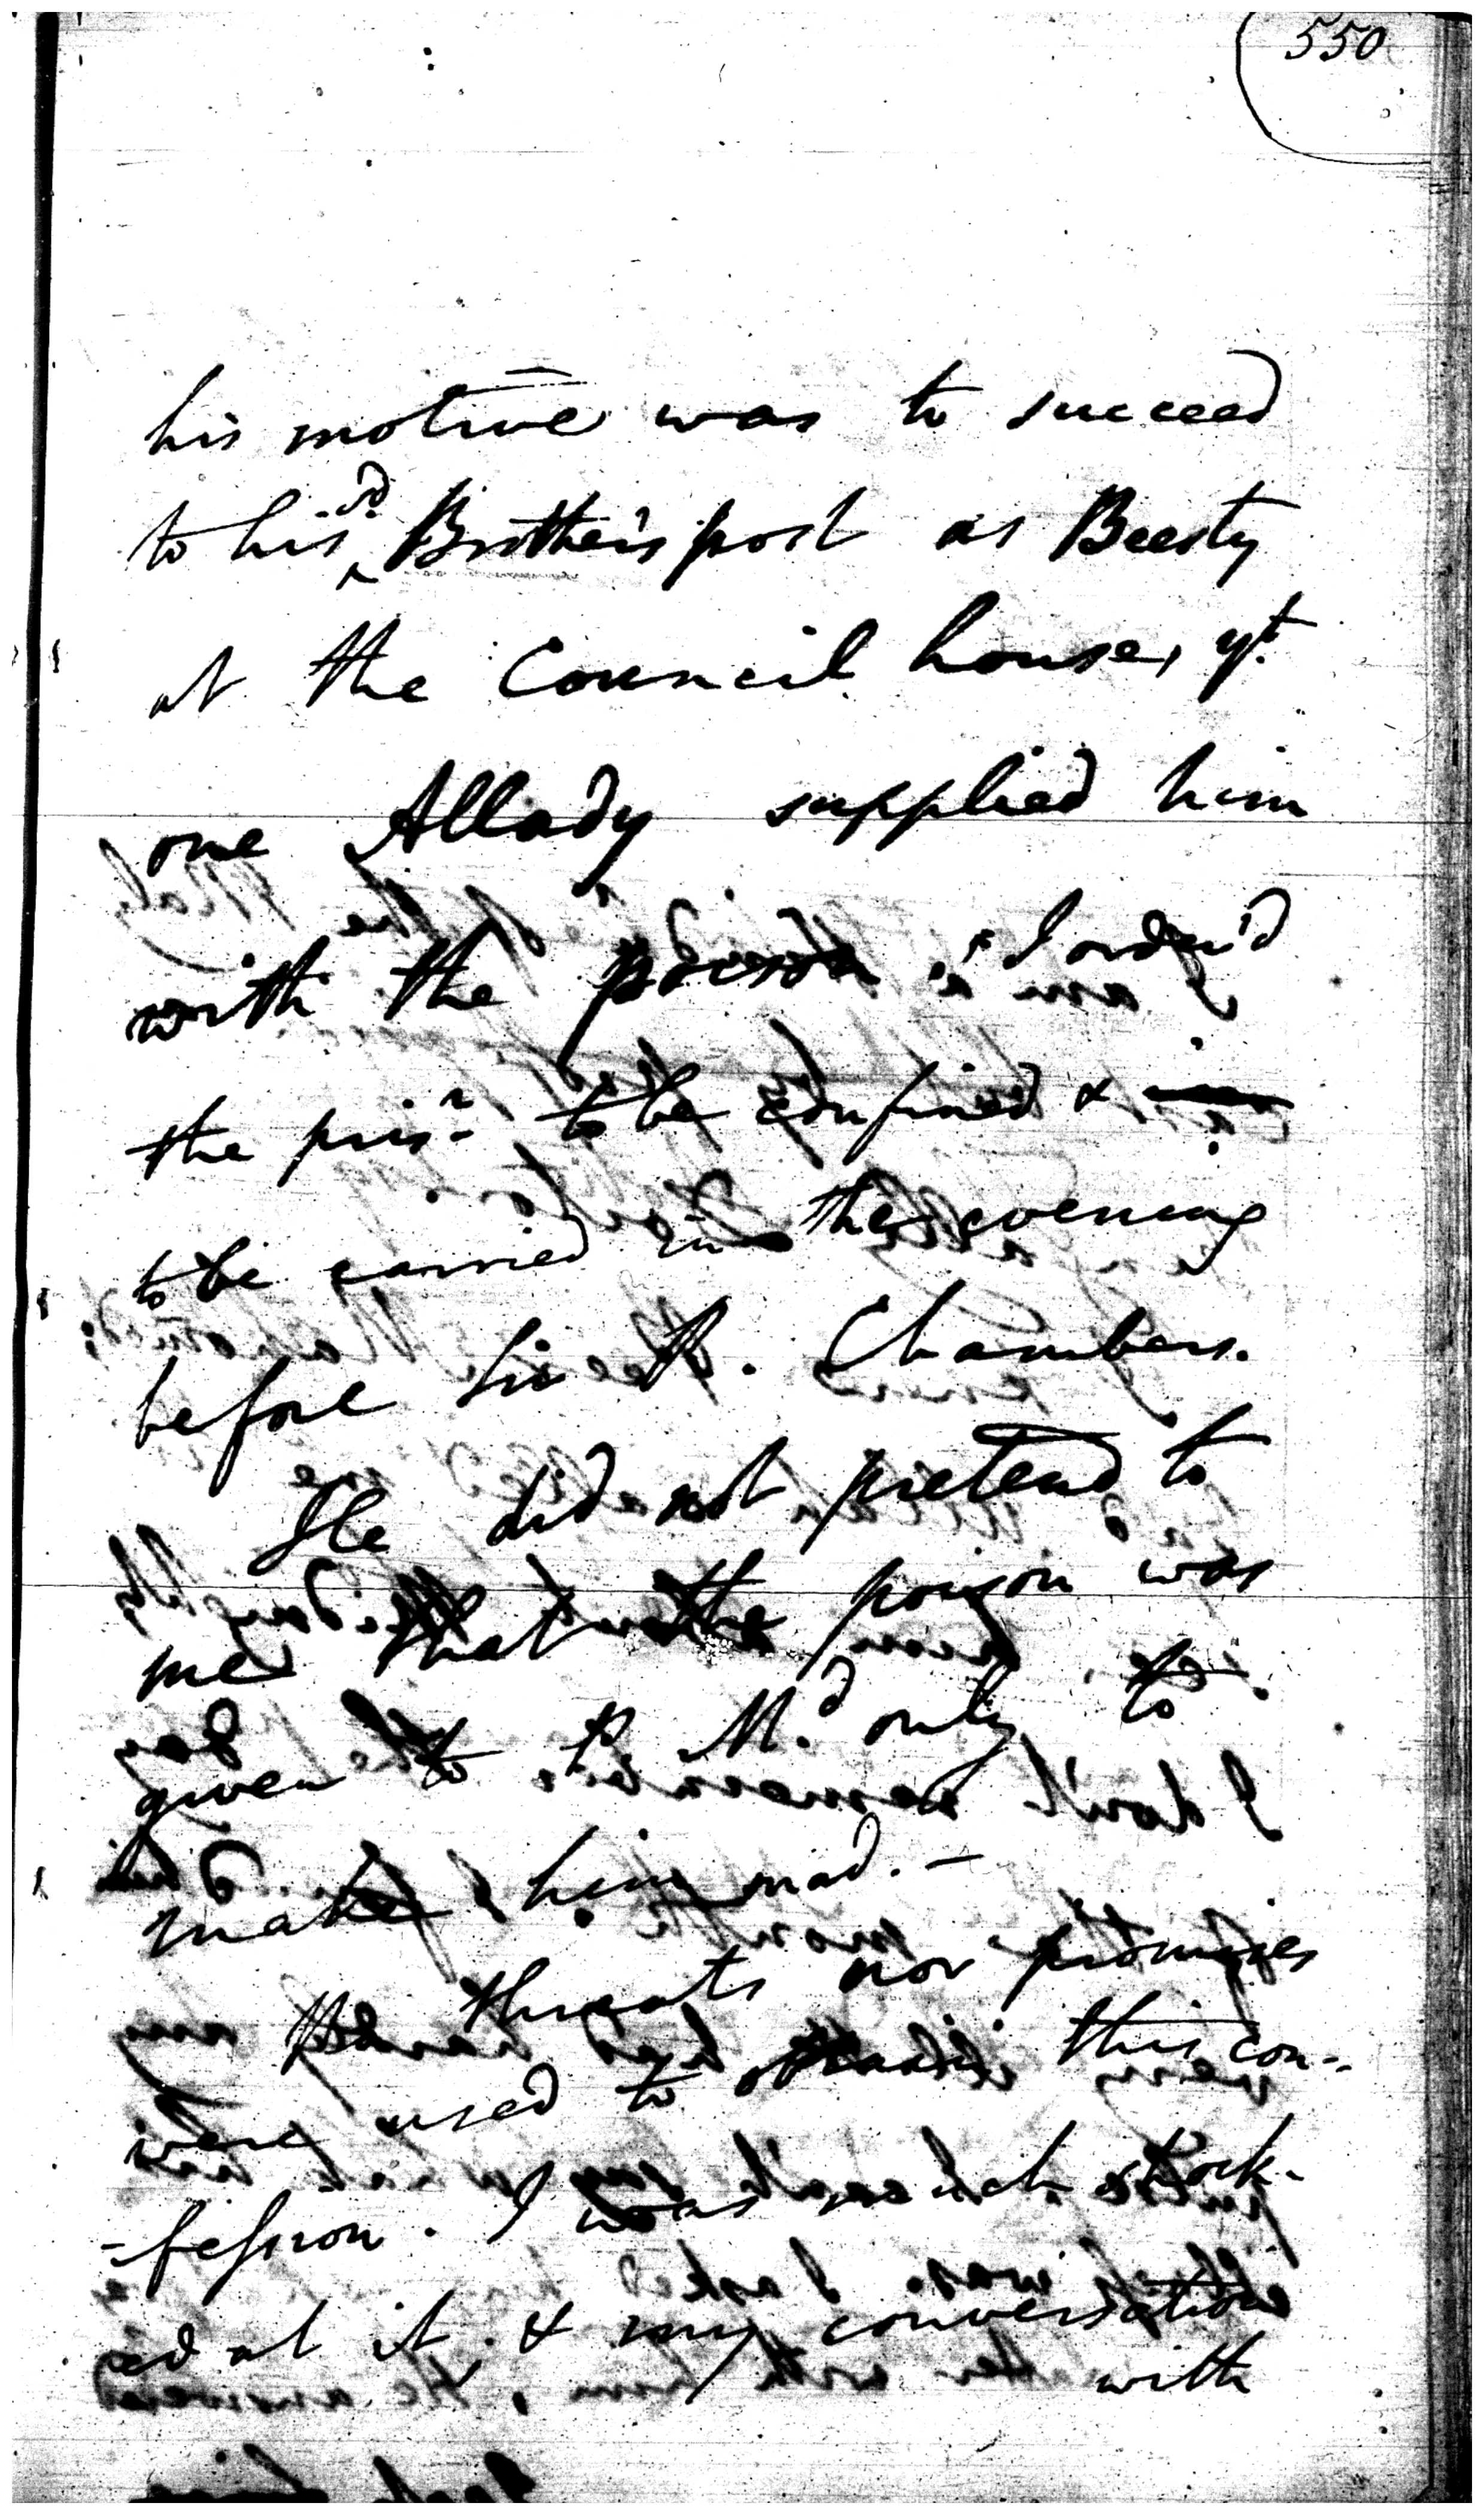 550
his motive was to succeed
to his sd. Brother's post as Beesty
at the Council house, yt.
one Allady supplied him
with the poison. I order'd
the prisr. to be confined &
to be carried in the evening
before Sir R. Chambers.
He did not pretend to
me that the poison was
given to P. Md. only to
make him mad. —
No threats nor promises
were used to obtain this con-
-fession. I was much shock-
ed at it, & my conversation
with